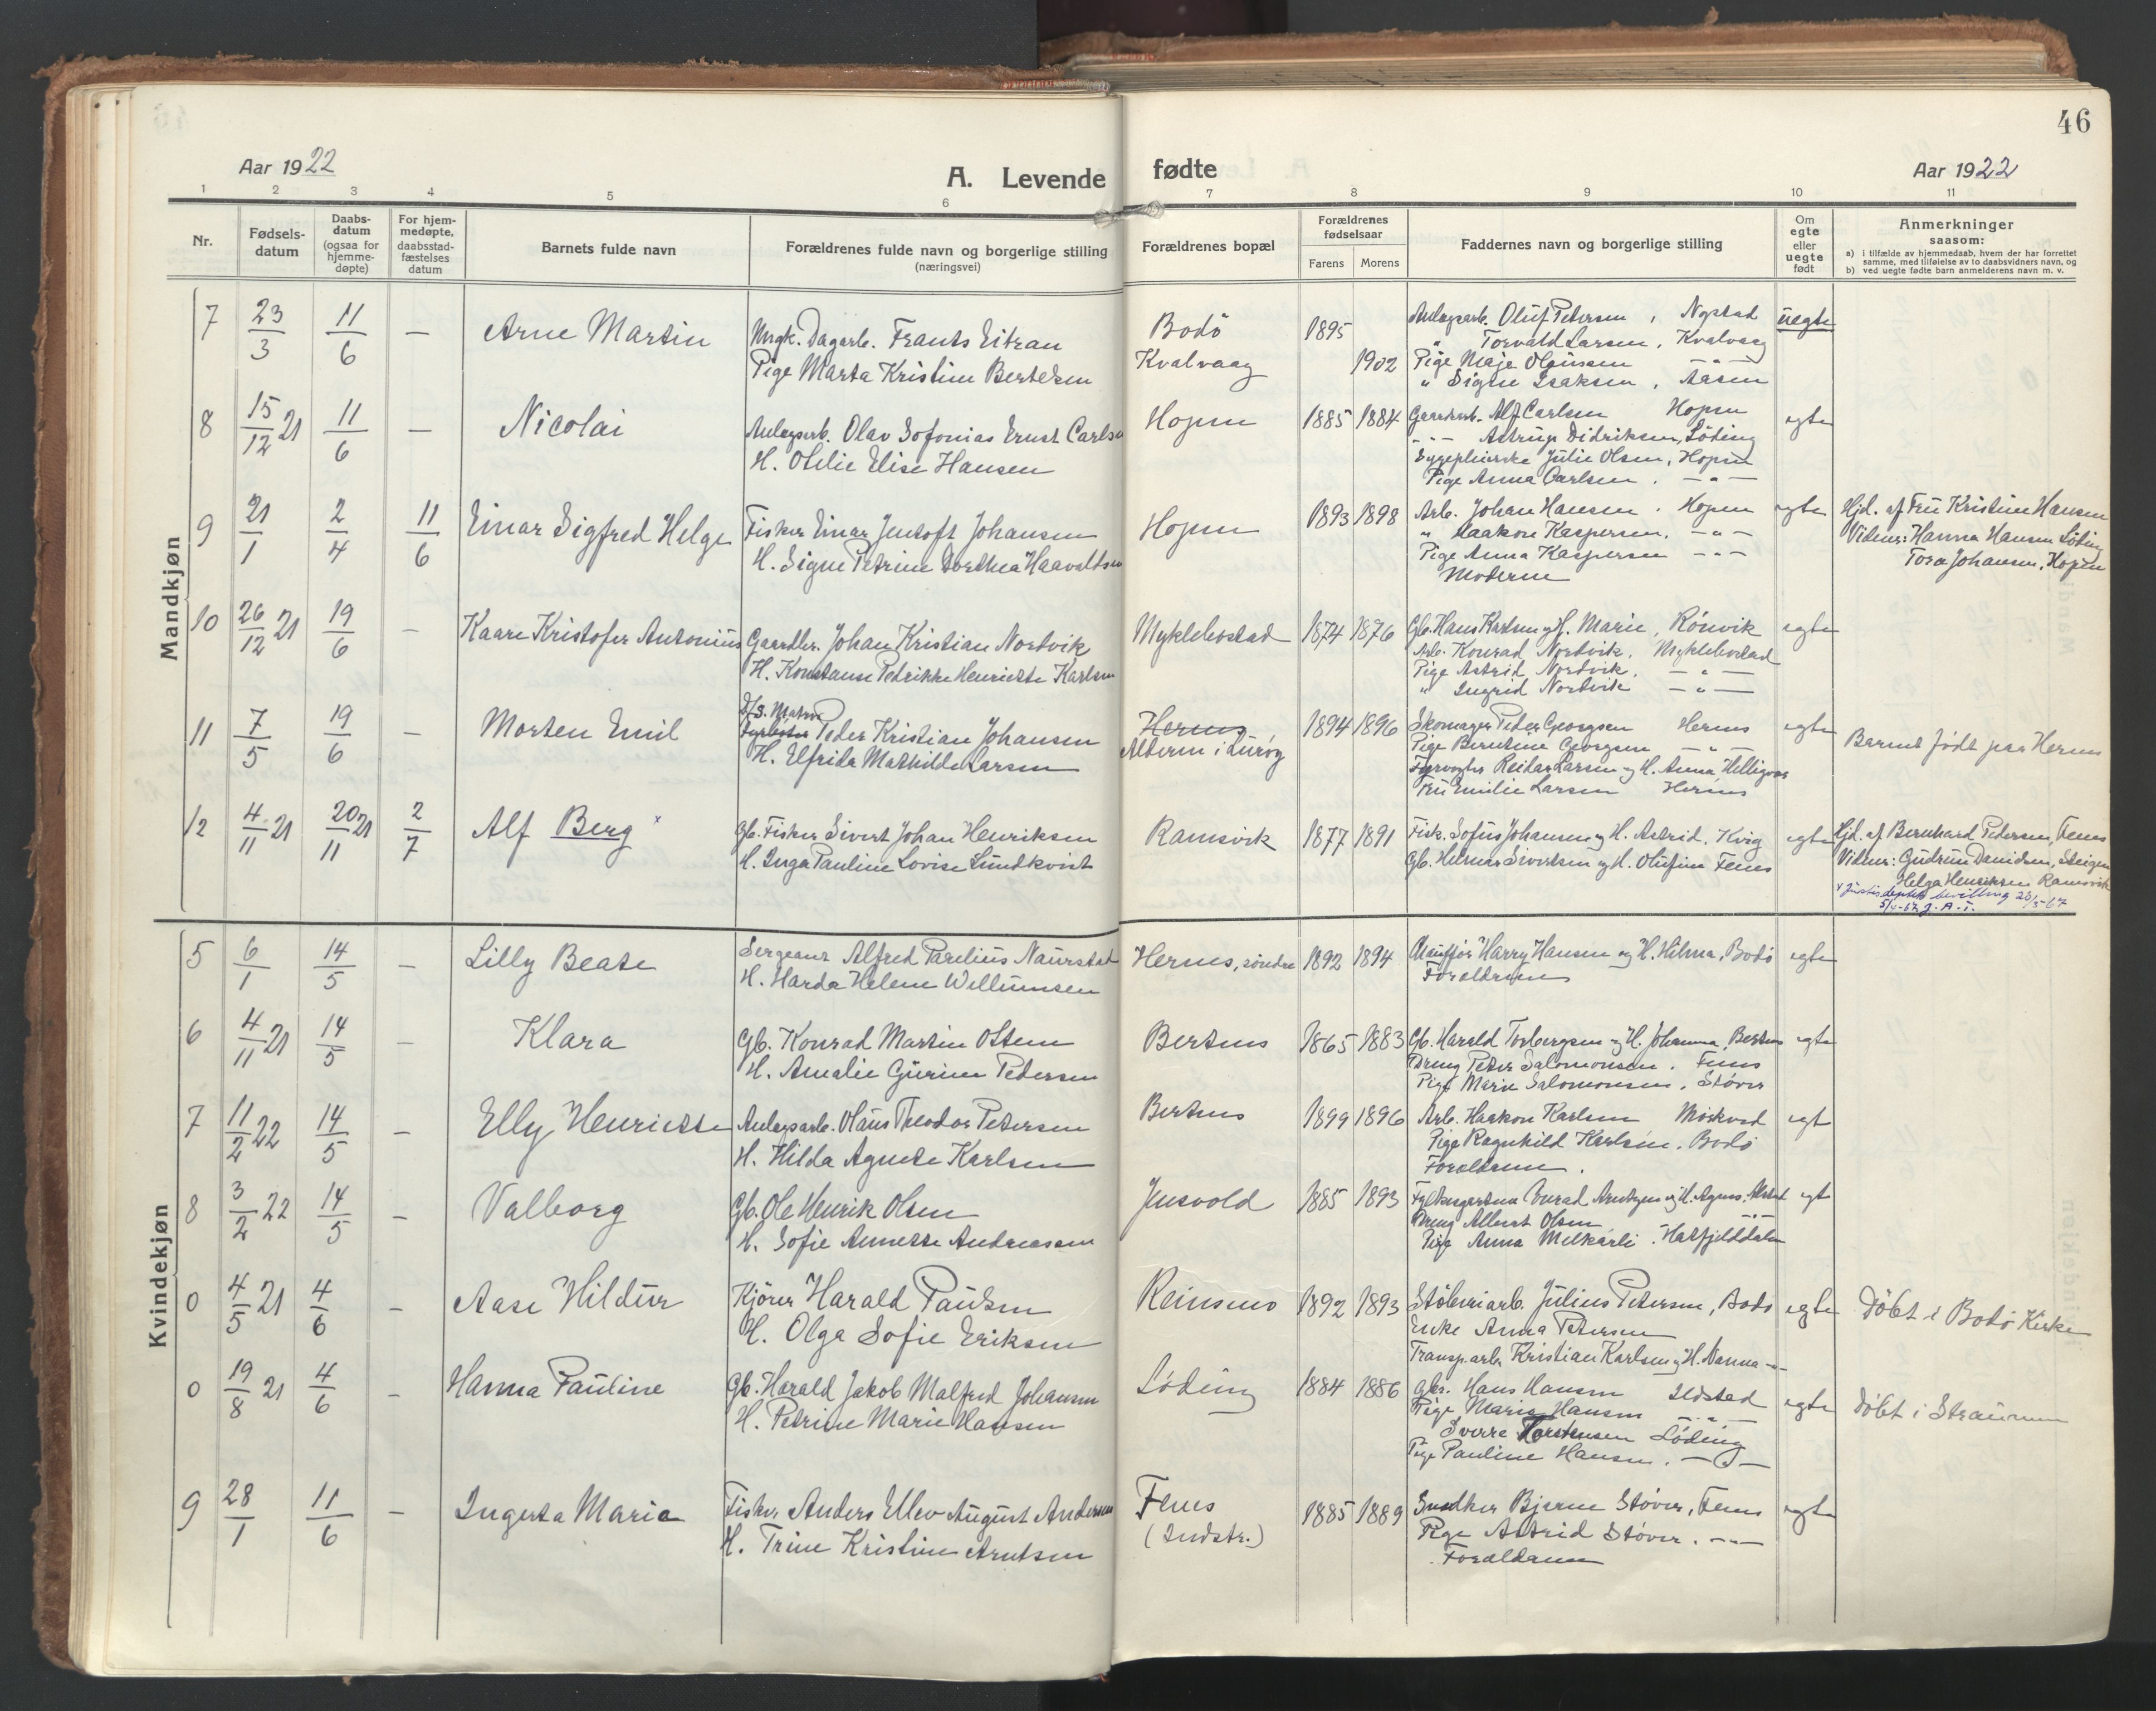 46
Aar 1922
A. Levende fødte
Aar 1922
1 2 3 4 5 6 7 8 9 10 11
Nr.
Fødsels-
datum
Daabs-
datum
(ogsaa for
hjemme-
døpte)
For hjem-
medøpte,
daabsstad-
fæstelses
datum
Barnets fulde navn
Forældrenes fulde navn og borgerlige stilling
(næringsvei)
Forældrenes bopæl
Forældrenes
fødselsaar
Farens Morens
Faddernes navn og borgerlige stilling
Om
egte
eller
uegte
født
Anmerkninger
saasom:
a) i tilfælde av hjemmedaab, hvem der har forrettet
samme, med tilføielse av to daabsvidners navn, og
b) ved uegte fødte barn anmelderens navn m. v.
Mandkjøn
7 23/3 11/6 — Arne Martin
Ungk. Dagarb. Frants Eitran
Pige Marta Kristine Bertelsen
Bodö
Kvalvaag
1895
1902
Anlægsarb. Oluf Petersen, Nystad
" Torvald Larsen, Kvalvaag
Pige Maja Olaussen —"—
" Signe Isaksen, Aasen
uegte
8 15/12 21 11/6 — Nicolai
Anlægsarb. Olav Sofonias Ernst Carlsen
H. Otelie Elise Hansen
Hopen
1885 1884
Gaardarb. Alf Carlsen Hopen
-"- Astrup Didriksen, Löding
Sygepleierske Julie Olsen, Hopen
Pige Anna Carlsen. —"—
egte
9 21/1 2/4 11/6 Einar Sigfred Helge
Fisker Einar Jentoft Johansen
H. Signe Petrine Dorthea Haavaldsen
Hopen
1893 1898
Arb. Johan Hansen. Hopen
" Haakon Kaspersen. —"—
Pige Anna Kaspersen —"—
Moderen
egte
Hjd. af Fru Kristine Hansen
Vidner: Hanna Hansen Löding
Tora Johansen, Hopen
10 26/12 21 19/6 — Kaare Kristofer Antonius
Gaardbr. Johan Kristian Nordvik
H. Konstanse Pedrikke Henriette Karlsen
Myklebostad
1874 1876
Gb. Hans Karlsen og H. Marie, Rönvik
Arb. Konrad Nordvik. Myklebostad
Pige Astrid Nordvik. —"—
" Ingrid Nordvik —"—
egte
11 7/5 19/6 — Morten Emil
Peder Kristian Johansen
H. Elfrida Mathilde Larsen
Hernes
Alderen i Lurøy
1894 1896
Skomager Peder Georgsen Hernes
Pige Berntine Georgsen —"—
Fyrvogter Reidar Larsen og H. Anna, Helligvær
Fru Emilie Larsen Hernes
egte
Barnet födt paa Hernes
12 4/11 21 20/11 21 2/7 Alf Berg x
Gb. Fisker Sivert Johan Henriksen
H. Inga Pauline Lovise Lundkvist
Ramsvik
1877 1891
Fisk. Sofus Johansen og H. Astrid. Kvig
Gb. Helmer Sivertsen og H. Olufine Fenes
egte
Hjd. af Bernhard Pedersen, Fenes
Vidner: Gudrun Danielsen, Steigen
Helga Henriksen Ramsvik
x Justisdeptets bevilling 20/3-67
Kvindekjøn
5 6/1 14/5 — Lilly Beate
Sergeant Alfred Parelius Naurstad
H. Harda Helene Willumsen
Hernes, söndre
1892 1894
Chauffør Harry Hansen og H. Hilma, Bodö
Forældrene
egte
6 4/11 21 14/5 — Klara
Gb. Konrad Martin Ottem
H. Amalie Gurine Pedersen
Bertnes
1865 1883
Gb. Harald Torbergsen og H. Johanna, Bertnes
Dreng Peter Salomonsen. Fenes
Pige Marie Salomonsen. Støver
egte
7 11/2 22 14/5 — Elly Henriette
Anlægsarb. Olaus Theodor Petersen
H. Hilda Agnete Karlsen
Bertnes
1899 1896
Arb. Haakon Karlsen Mörkved
Pige Ragnhild Karlsen. Bodö
Forældrene.
egt
8 3/2 22 14/5 — Valborg
Gb. Ole Henrik Olsen
H. Sofie Annette Andreassen
Jensvold
1885 1893
Dreng Albert Olsen —"—
Pige Anna Melkarli. Hatfjelddalen
egt
0 4/5 21 4/6 — Aase Hildur
Kjörer Harald Paulsen
H. Olga Sofie Eriksen
Reinsmo
1892 1893
Støberiarb. Julius Petersen, Bodö
Enke Anna Petersen
Transp.arb. Kristian Karlsen og H. Nanna —"—
egte
Döbt i Bodö Kirke
0 19/8 21 4/6 — Hanna Pauline
Gb. Harald Jakob Malfred Johansen
H. Petrine Marie Hansen
Löding
1884 1886
Gbr. Hans Hansen Ildstad
Pige Marie Hansen —"—
Sverre Torstensen Löding
Pige Pauline Hansen. —"—
egte
Döbt i Straumen
9 28/1 11/6 — Ingerta Marie
Fisker Anders Ellev August Andersen
H. Trine Kristine Arntsen
Fenes
(Indstr.)
1885 1889
Snedker Bjarne Støver, Fenes
Pige Astrid Støver. —"—
Forældrene
egte